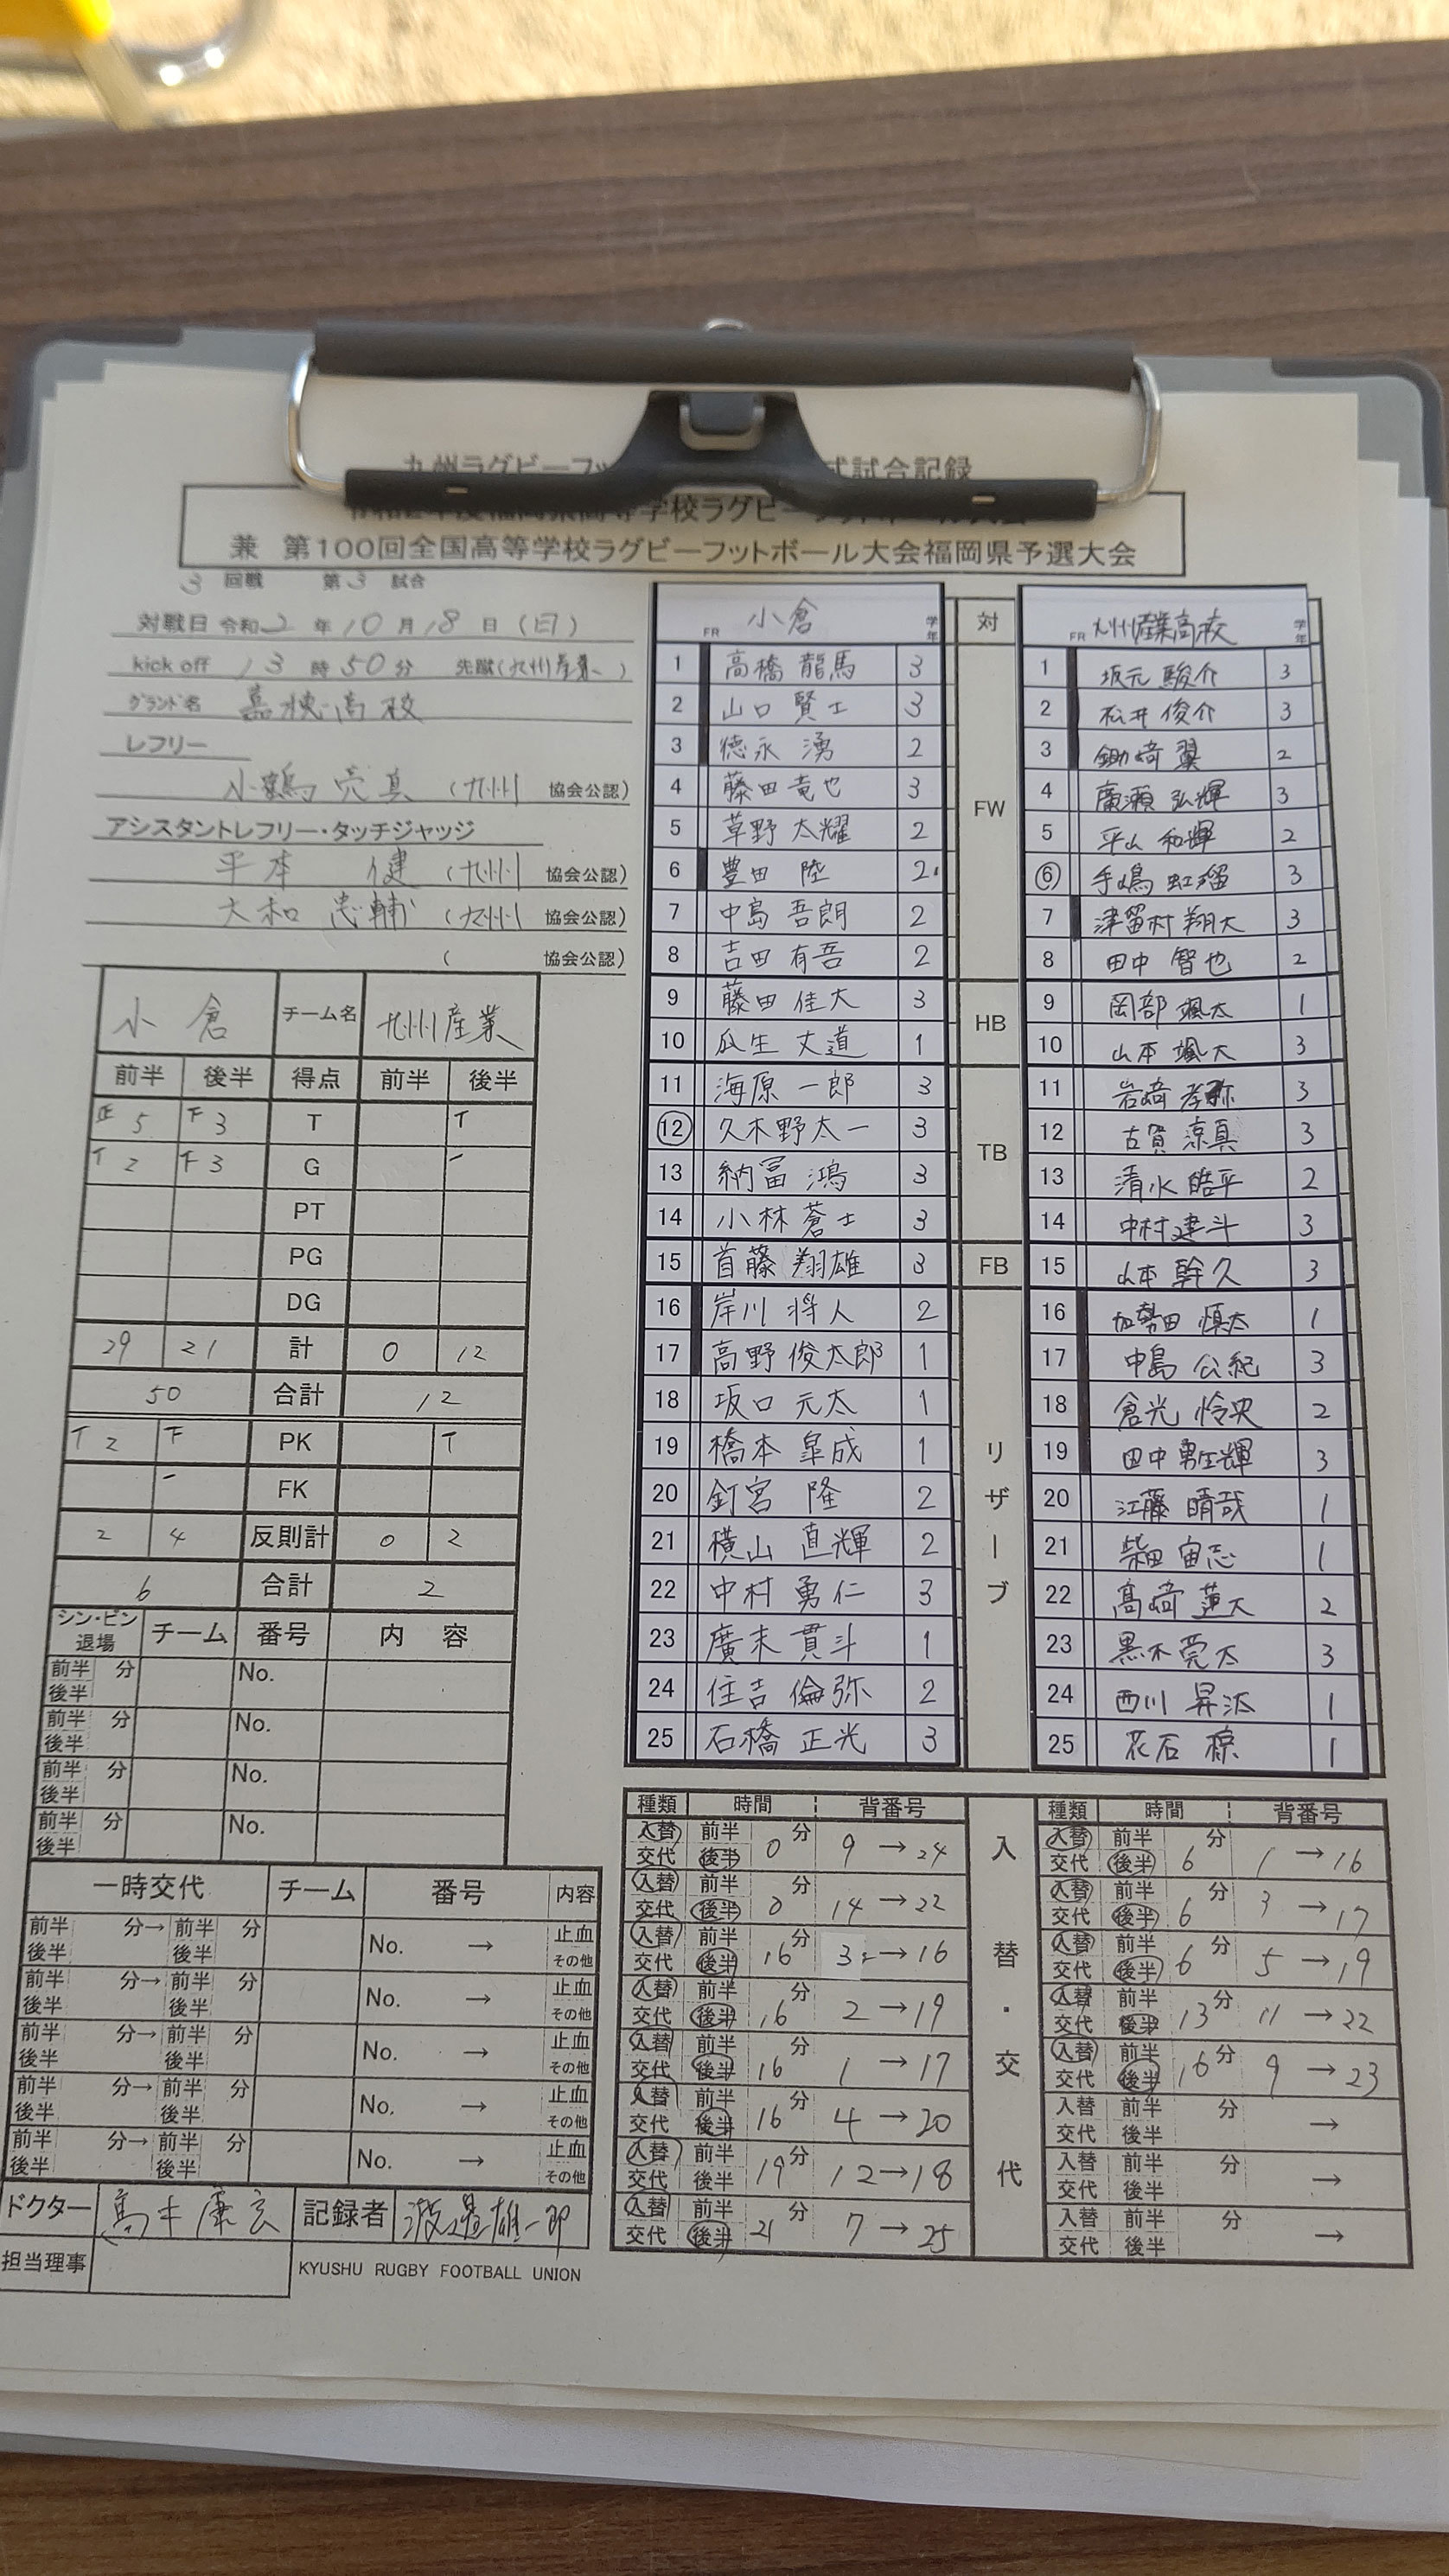 九州ラグビーフッ 式試合記録
兼 第100回全国高等学校ラグビーフットボール大会福岡県予選大会
3 回戦 第3 試合
対戦日 令和2 年 10 月 18 日 (日)
kick off 13 時 50 分 先蹴(九州産業)
グランド名 嘉穂高校
レフリー
(九州 協会公認)
アシスタントレフリー・タッチジャッジ
平本 健 (九州 協会公認)
大和 忠輔 (九州 協会公認)
( 協会公認)
小倉 チーム名 九州産業
前半 後半 得点 前半 後半
正 5 下 3 T T
T 2 下 3 G -
PT
PG
DG
29 21 計 0 12
50 合計 12
T 2 下 PK T
- FK
2 4 反則計 0 2
6 合計 2
シン・ビン 退場 チーム 番号 内 容
前半 後半 分 No.
前半 後半 分 No.
前半 後半 分 No.
前半 後半 分 No.
一時交代 チーム 番号 内容
前半 後半 分→ 前半 後半 分 No. → 止血 その他
前半 後半 分→ 前半 後半 分 No. → 止血 その他
前半 後半 分→ 前半 後半 分 No. → 止血 その他
前半 後半 分→ 前半 後半 分 No. → 止血 その他
前半 後半 分→ 前半 後半 分 No. → 止血 その他
ドクター 記録者 渡邉雄一郎
担当理事
KYUSHU RUGBY FOOTBALL UNION
FR 小倉 学年
1 高橋 龍馬 3
2 山口 賢士 3
3 徳永 湧 2
4 藤田竜也 3
5 草野 太耀 2
6 豊田 陸 2
7 中島 吾朗 2
8 吉田 有吾 2
9 藤田 佳大 3
10 瓜生 丈道 1
11 海原 一郎 3
12 久木野太一 3
13 納冨 鴻 3
14 小林 蒼士 3
15 首藤 翔雄 3
16 岸川 将人 2
17 高野 俊太郎 1
18 坂口 元太 1
19 橋本 皐成 1
20 釘宮 隆 2
21 横山 直輝 2
22 中村 勇仁 3
23 廣末 貫斗 1
24 住吉 倫弥 2
25 石橋 正光 3
対
FW
HB
TB
FB
リザーブ
FR 九州産業高校 学年
1 坂元 駿介 3
2 松井 俊介 3
3 鋤﨑 翼 2
4 廣瀬 弘輝 3
5 平山 和輝 2
6 手嶋 虹瑠 3
7 津留村 翔大 3
8 田中 智也 2
9 岡部 颯太 1
10 山本 颯大 3
11 岩﨑 孝弥 3
12 古賀 涼真 3
13 清水 皓平 2
14 中村 建斗 3
15 山本 幹久 3
16 加勢田 慎太 1
17 中島 公紀 3
18 倉光 怜央 2
19 田中 勇輝 3
20 江藤 晴哉 1
21 柴田 宙志 1
22 髙﨑 蓮大 2
23 黒木 亮太 3
24 西川 昇汰 1
25 花石 1
種類 時間 背番号
入替 交代 前半 後半 0 分 9 → 24
入替 交代 前半 後半 0 分 14 → 22
入替 交代 前半 後半 16 分 3 → 16
入替 交代 前半 後半 16 分 2 → 19
入替 交代 前半 後半 16 分 1 → 17
入替 交代 前半 後半 16 分 4 → 20
入替 交代 前半 後半 19 分 12 → 18
入替 交代 前半 後半 21 分 7 → 25
入替・交代
種類 時間 背番号
入替 交代 前半 後半 6 分 1 → 16
入替 交代 前半 後半 6 分 3 → 17
入替 交代 前半 後半 6 分 5 → 19
入替 交代 前半 後半 13 分 11 → 22
入替 交代 前半 後半 16 分 9 → 23
入替 交代 前半 後半 分 →
入替 交代 前半 後半 分 →
入替 交代 前半 後半 分 →